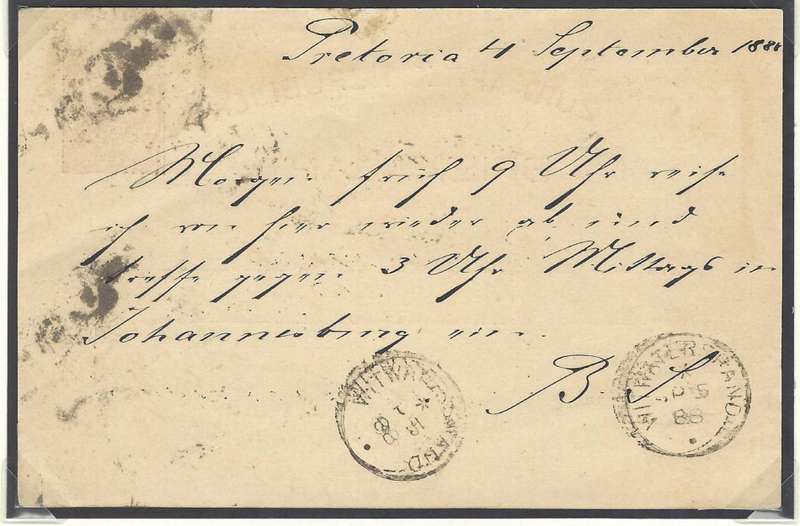 Pretoria 4 September 1888
Morgen früh 9 Uhr reise
ich von hier wieder ab und
treffe gegen 3 Uhr Mittags in
Johannesburg ein.
B. S.
WITWATERSRAND
88
WITWATERSRAND
SP 5
88